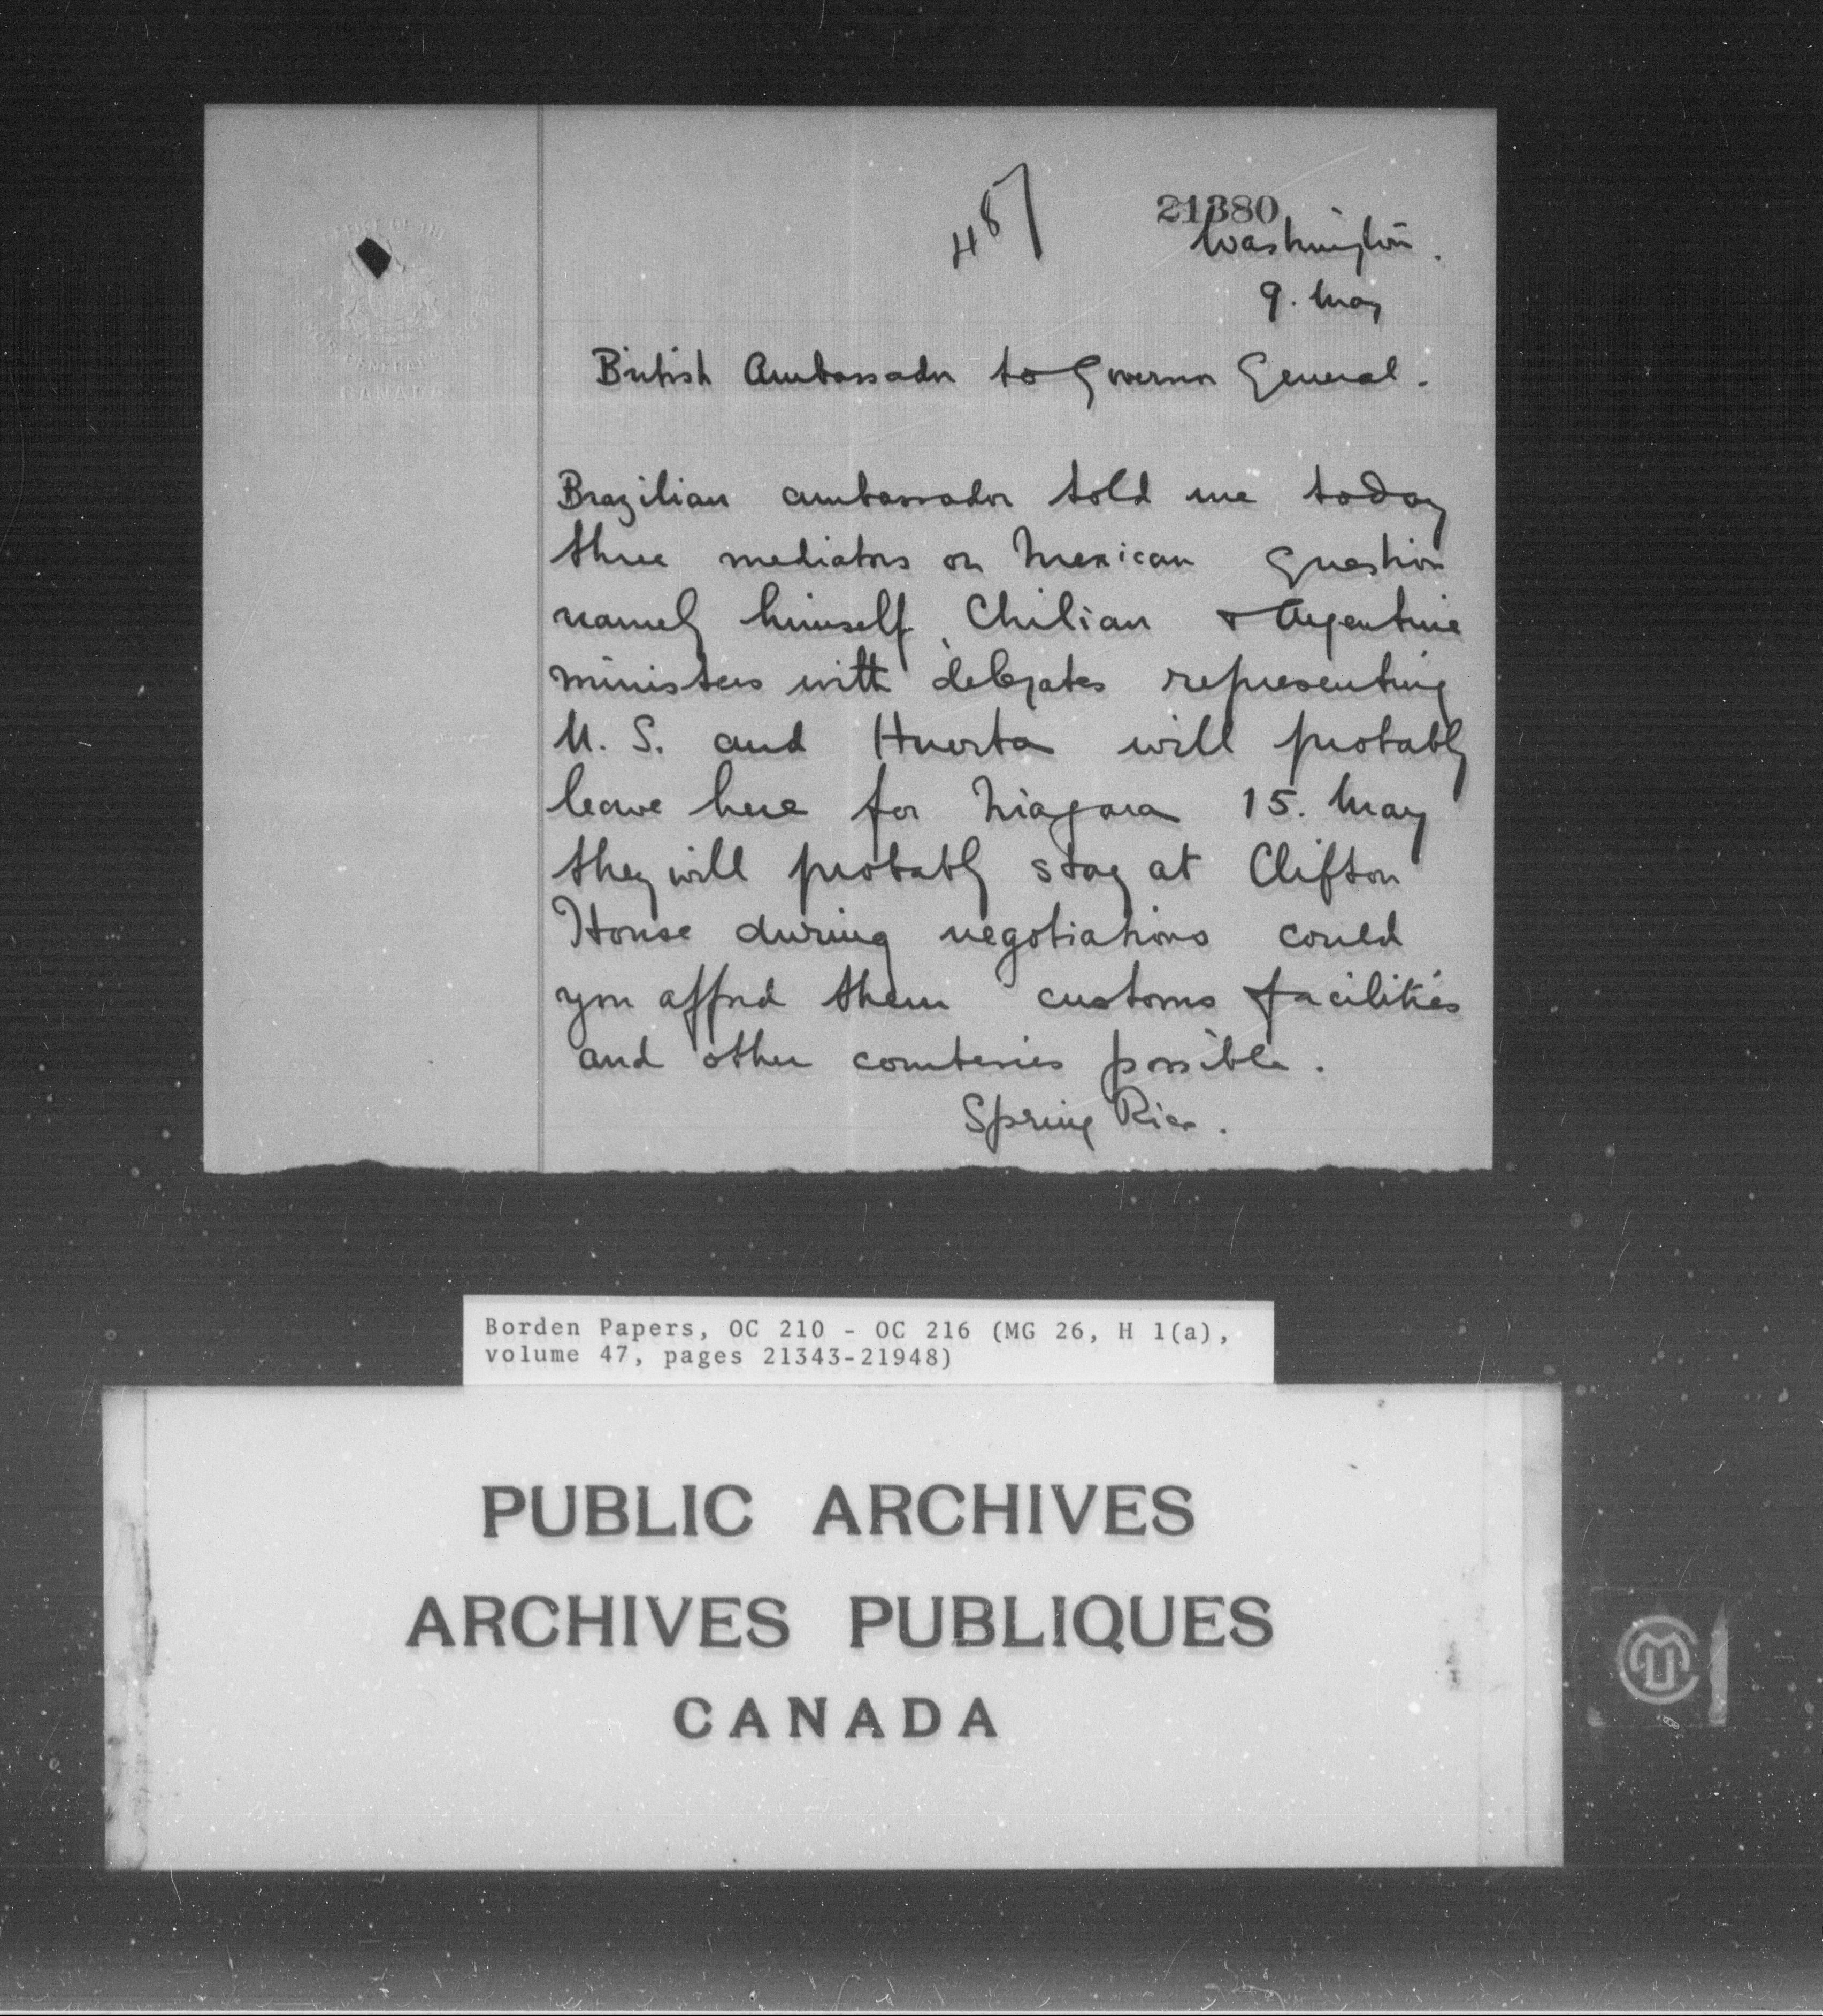 487
21380
Washington.
9. May
British Ambassador to Governor General.
Brazilian ambassador told me today
three mediators on Mexican question
namely himself, Chilian & Argentine
ministers with delegates representing
U. S. and Huerta will probably
leave here for Niagara 15. May
they will probably stay at Clifton
House during negotiations could
you afford them customs facilities
and other courtesies possible.
Spring Rice.
CANADA
Borden Papers, OC 210 - OC 216 (MG 26, H 1(a),
volume 47, pages 21343-21948)
PUBLIC ARCHIVES
ARCHIVES PUBLIQUES
CANADA